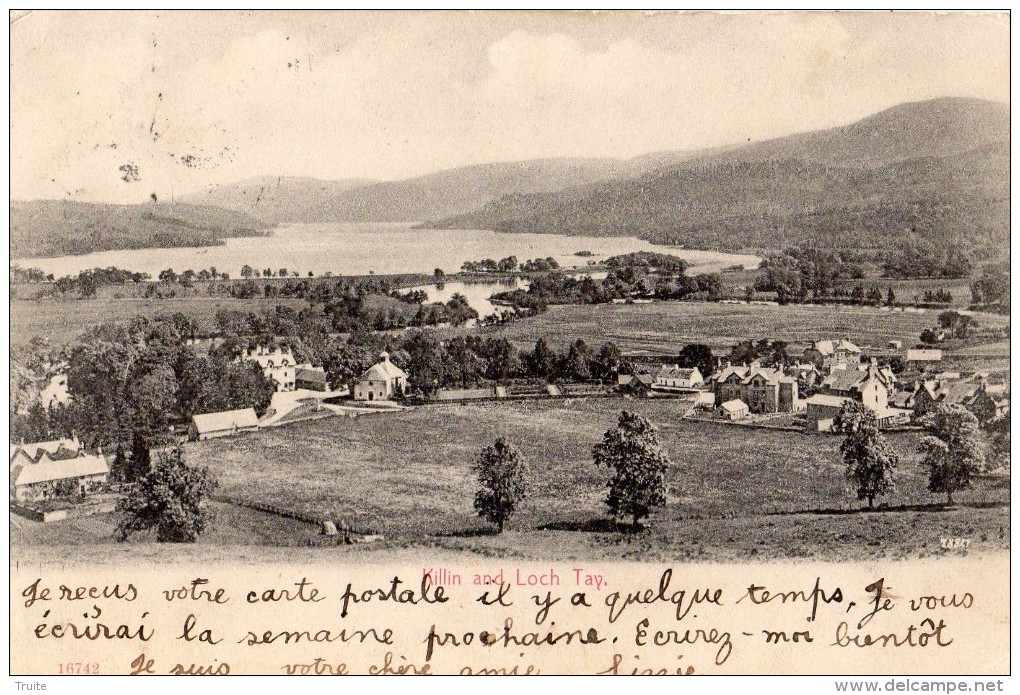 Killin and Loch Tay.
Je reçus votre carte postale il y a quelque temps. Je vous
écrirai la semaine prochaine. Ecrirez-moi bientôt
16742 Je suis votre chère amie Lizzie
Truite
www.delcampe.net